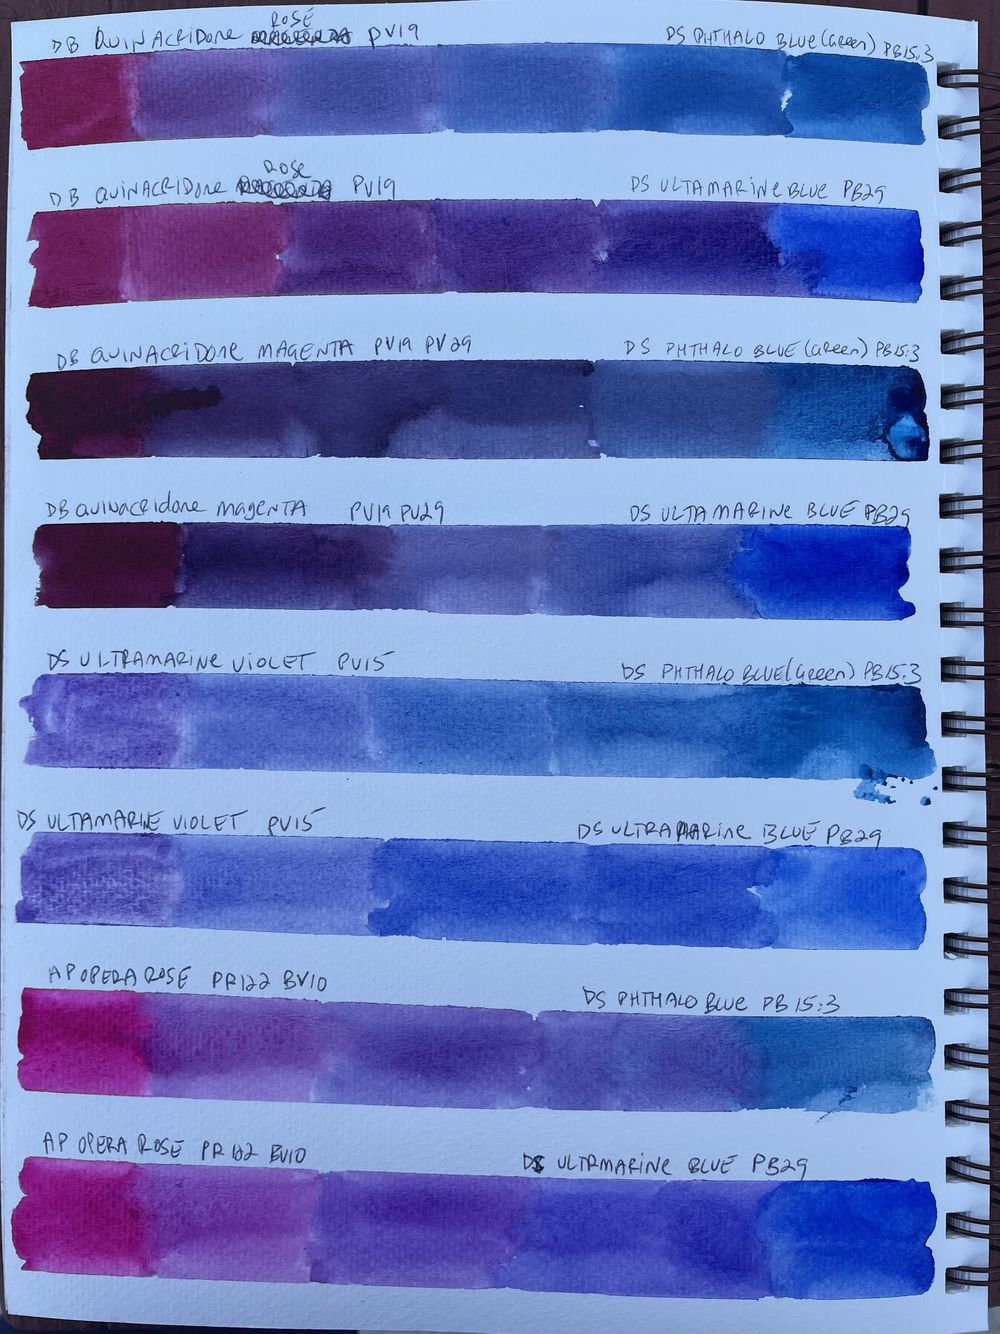 ROSE
DB QUINACRIDONE PV19 DS PHTHALO BLUE (Green) PB15:3
ROSE
DB QUINACRIDONE PV19 DS ULTAMARINE BLUE PB29
DB QUINACRIDONE MAGENTA PV19 PV29 DS PHTHALO BLUE (Green) PB15:3
DB QUINACRIDONE MAGENTA PV19 PV29 DS ULTAMARINE BLUE PB29
DS ULTRAMARINE VIOLET PV15 DS PHTHALO BLUE (Green) PB15:3
DS ULTAMARINE VIOLET PV15 DS ULTRAMARINE BLUE PB29
AP OPERA ROSE PR122 BV10 DS PHTHALO BLUE PB 15:3
AP OPERA ROSE PR122 BV10 DS ULTRMARINE BLUE PB29